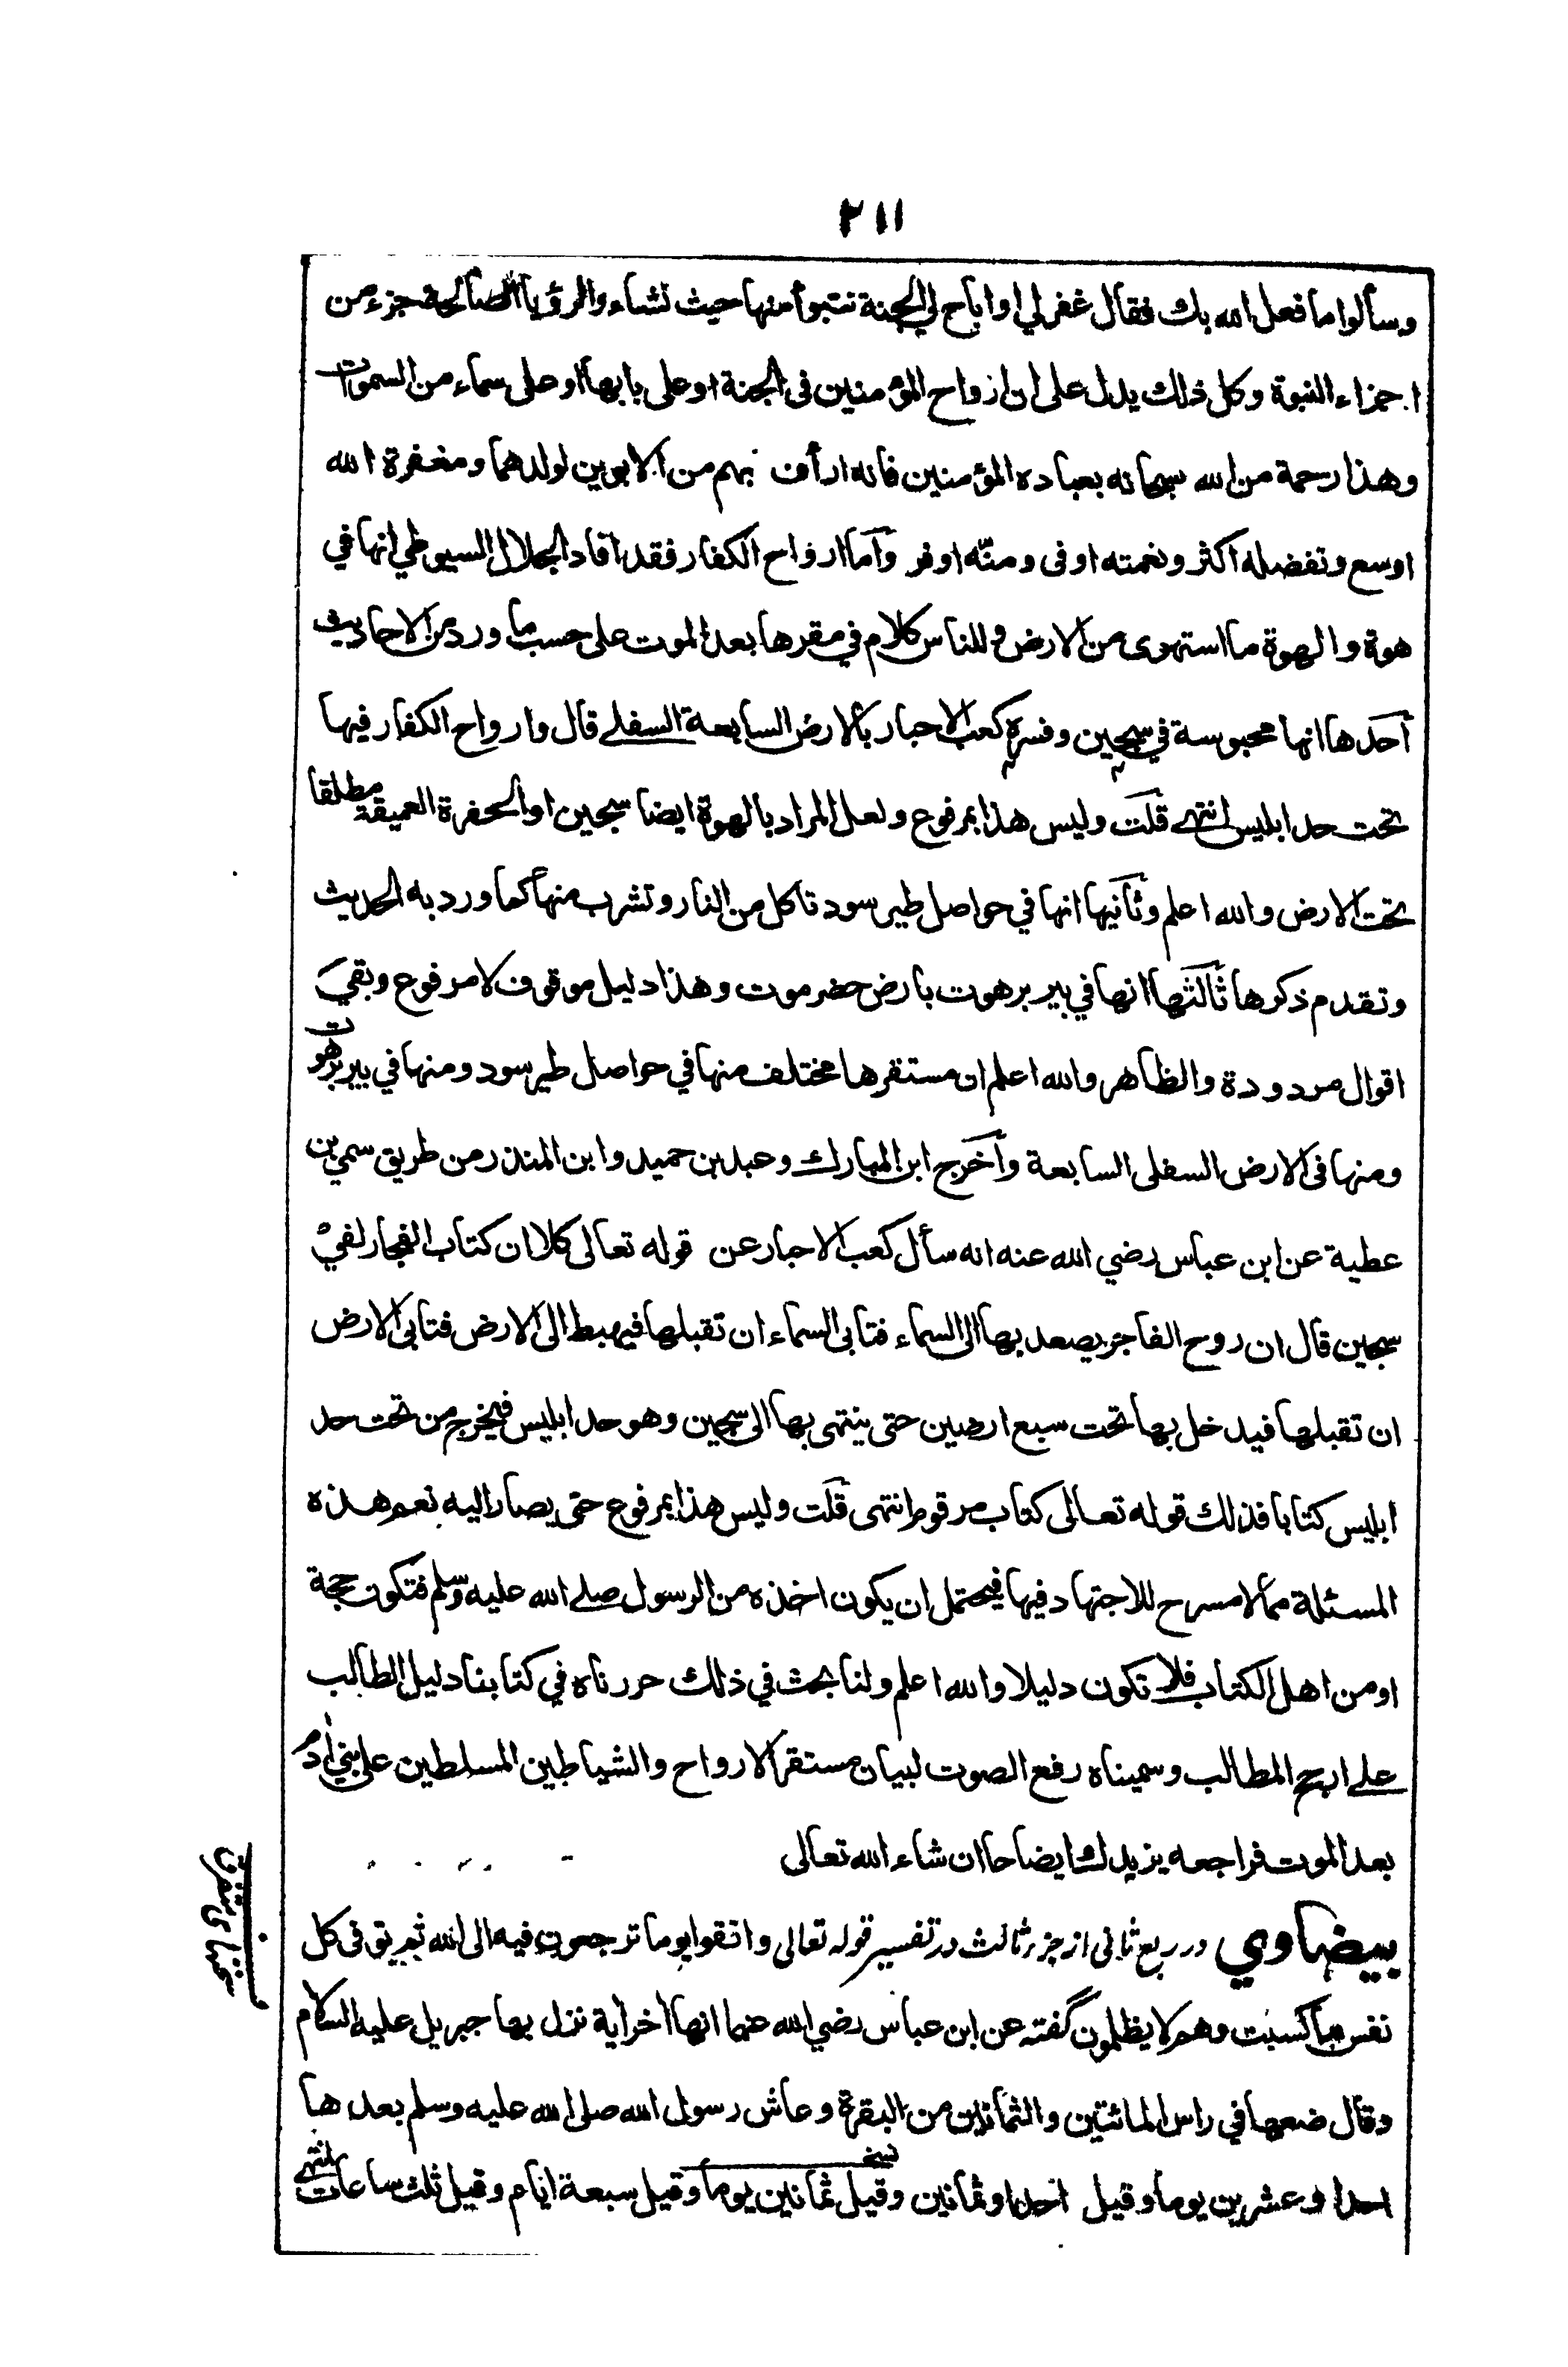 ٢١١
وسألوا ما فعل الله بك فقال غفر لي اوا باح لي الجنة نتبوأ منها حيث نشاء والرؤيا الصالحة جزء من
اجزاء النبوة وكل ذلك يدل على ان ارواح المؤمنين في الجنة او على بابها او على سماء من السموات
وهذا رحمة من الله سبحانه بعباده المؤمنين فانه ارأف بهم من الابوين لولدهما ومغفرة الله
اوسع وتفضله اكثر ونعمته اوفى ومنّه اوفر وأما ارواح الكفار فقد افاد الجلال السيوطي انها في
هوة والهوة ما استهوى من الارض وللناس كلام في مقرها بعد الموت على حسب ما ورد من الاحاديث
أحدها انها محبوسة في سجين وفسره كعب الاحبار بالارض السابعة السفلے قال وارواح الكفار فيها
تحت حد ابليس انتهے قلت وليس هذا بمرفوع ولعل المراد بالهوة ايضا سجين او الحفرة العميقة مطلقا
تحت الارض والله اعلم وثانيها انها في حواصل طير سود تاكل من النار وتشرب منها كما ورد به الحديث
وتقدم ذكرها ثالثها انها في بير برهوت بارض حضرموت وهذا دليل موقوف لا مرفوع وبقي
اقوال مردودة والظاهر والله اعلم ان مستقرها مختلف منها في حواصل طير سود ومنها في بير برهوت
ومنها في الارض السفلى السابعة وأخرج ابن المبارك وعبد بن حميد وابن المنذر من طريق سمي بن
عطية عن ابن عباس رضي الله عنه انه سأل كعب الاحبار عن قوله تعالى كلا ان كتاب الفجار لفي
سجين قال ان روح الفاجر يصعد بها الى السماء فتابى السماء ان تقبلها فيهبط الى الارض فتابى الارض
ان تقبلها فيدخل بها تحت سبع ارضين حتى ينتهى بها الى سجين وهو حد ابليس فيخرج من تحت حد
ابليس كتابا فذلك قوله تعالى كتاب مرقوم انتهى قلت وليس هذا بمرفوع حتى يصار اليه نعم هذه
المسئلة مما لا مسرح للاجتهاد فيها فيحتمل ان يكون اخذه من الرسول صلے الله عليه وسلم فتكون حجة
او من اهل الكتاب فلا تكون دليلا والله اعلم ولنا بحث في ذلك حررناه في كتابنا دليل الطالب
علے ارجح المطالب وسميناه رفع الصوت لبيان مستقر الارواح والشياطين المسلطين على بني أدم
بعد الموت فراجعه يزيد لك ايضاحا ان شاء الله تعالى
بيضاوي در ربع ثانى از جزء ثالث در تفسير قوله تعالى واتقوا يوما ترجعون فيه الى الله ثم يوق فى كل
نفس ما كسبت وهم لا يظلمون گفته عن ابن عباس رضي الله عنهما انها أخر أية نزل بها جبريل عليه السلام
وقال ضعها في راس المائتين والثمانين من البقرة وعاش رسول الله صلى الله عليه وسلم بعدها
احدا وعشرين يوما وقيل احدا وثمانين وقيل ثمانين يوما وقيل سبعة ايام وقيل ثلث ساعات انتهے
نسخه